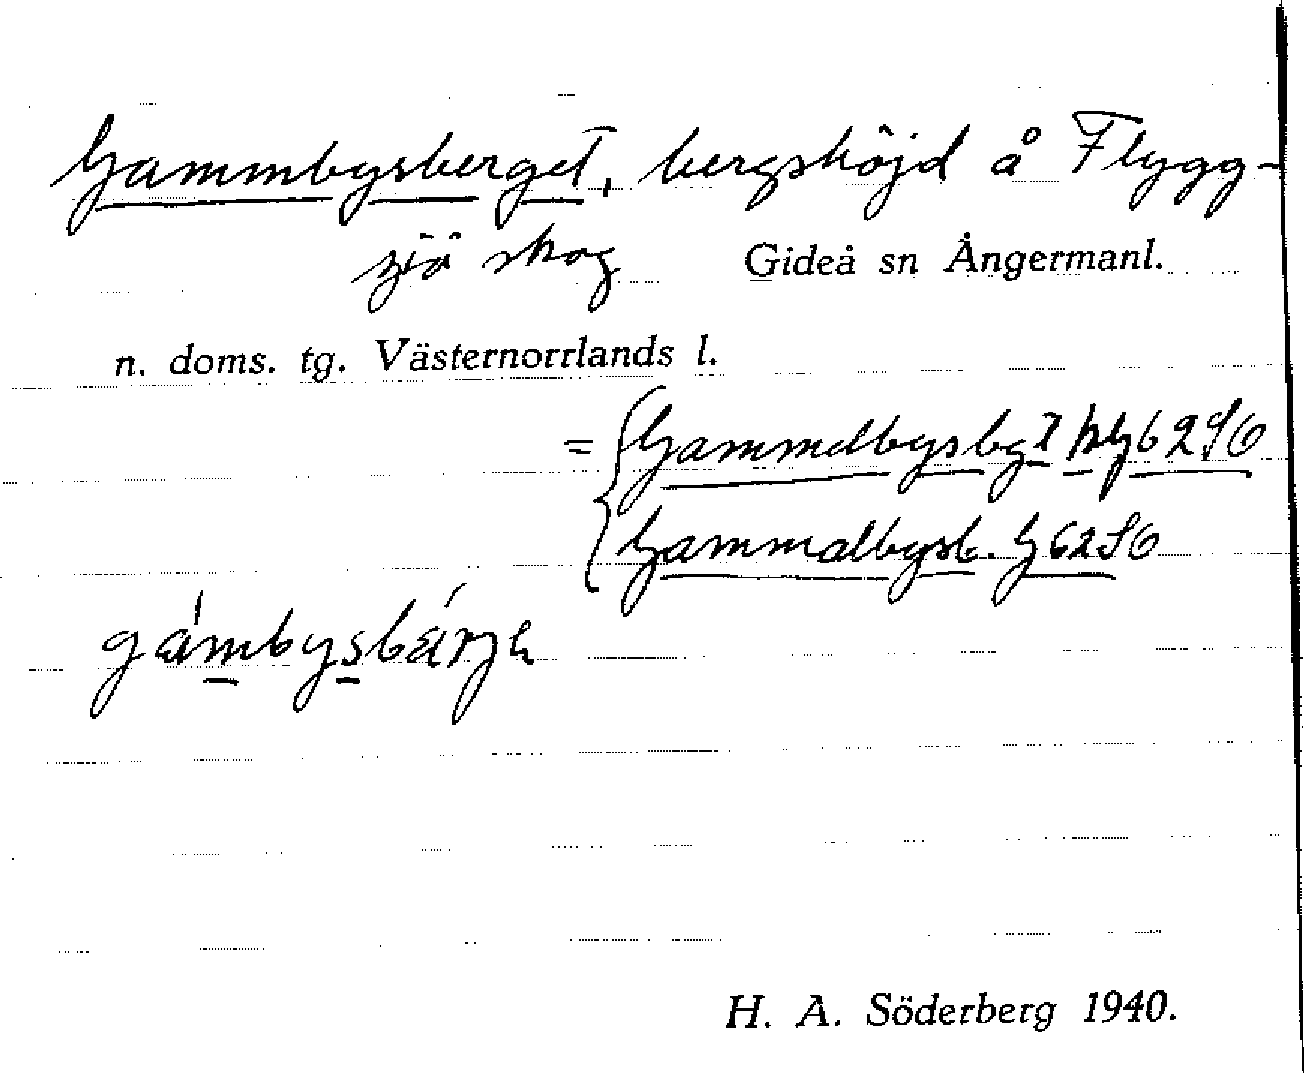 Gammbysberget, bergshöjd å Flygg-
sjö skog Gideå sn Ångermanl.
n. doms. tg. Västernorrlands l.
= Gammelbysbgt
Gammalbysb. G 62 SO
gámbysbárjə
H. A. Söderberg 1940.